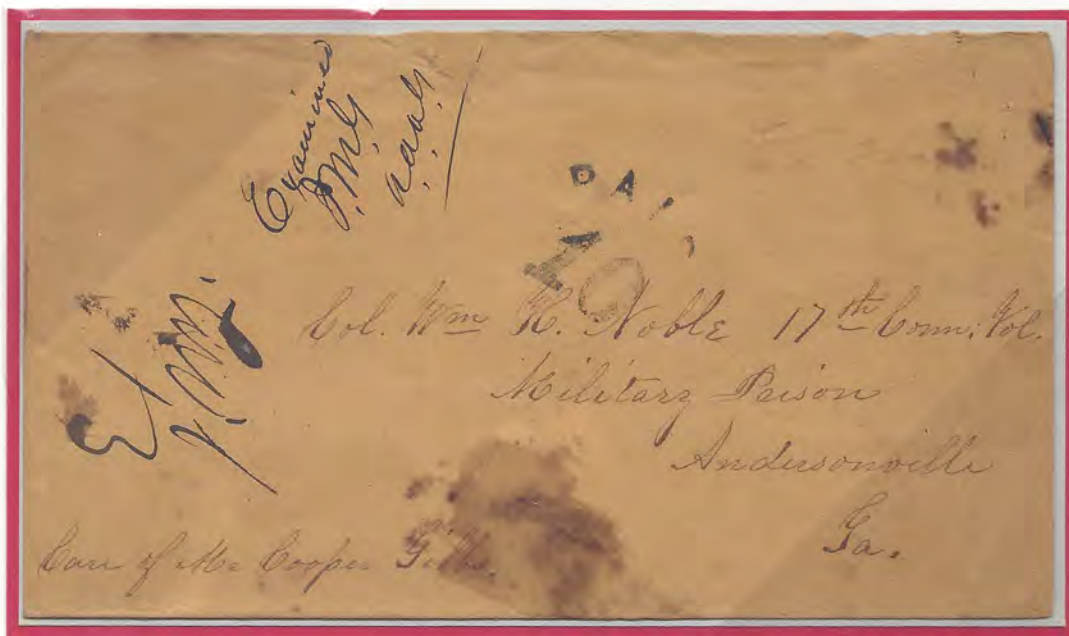 Examined
P.M.G.
a.a.G.
PAI
10
Col. Wm H. Noble 17th Conn. Vol.
Military Prison
Andersonville
Ga.
Care of Mr Cooper Gibbs.